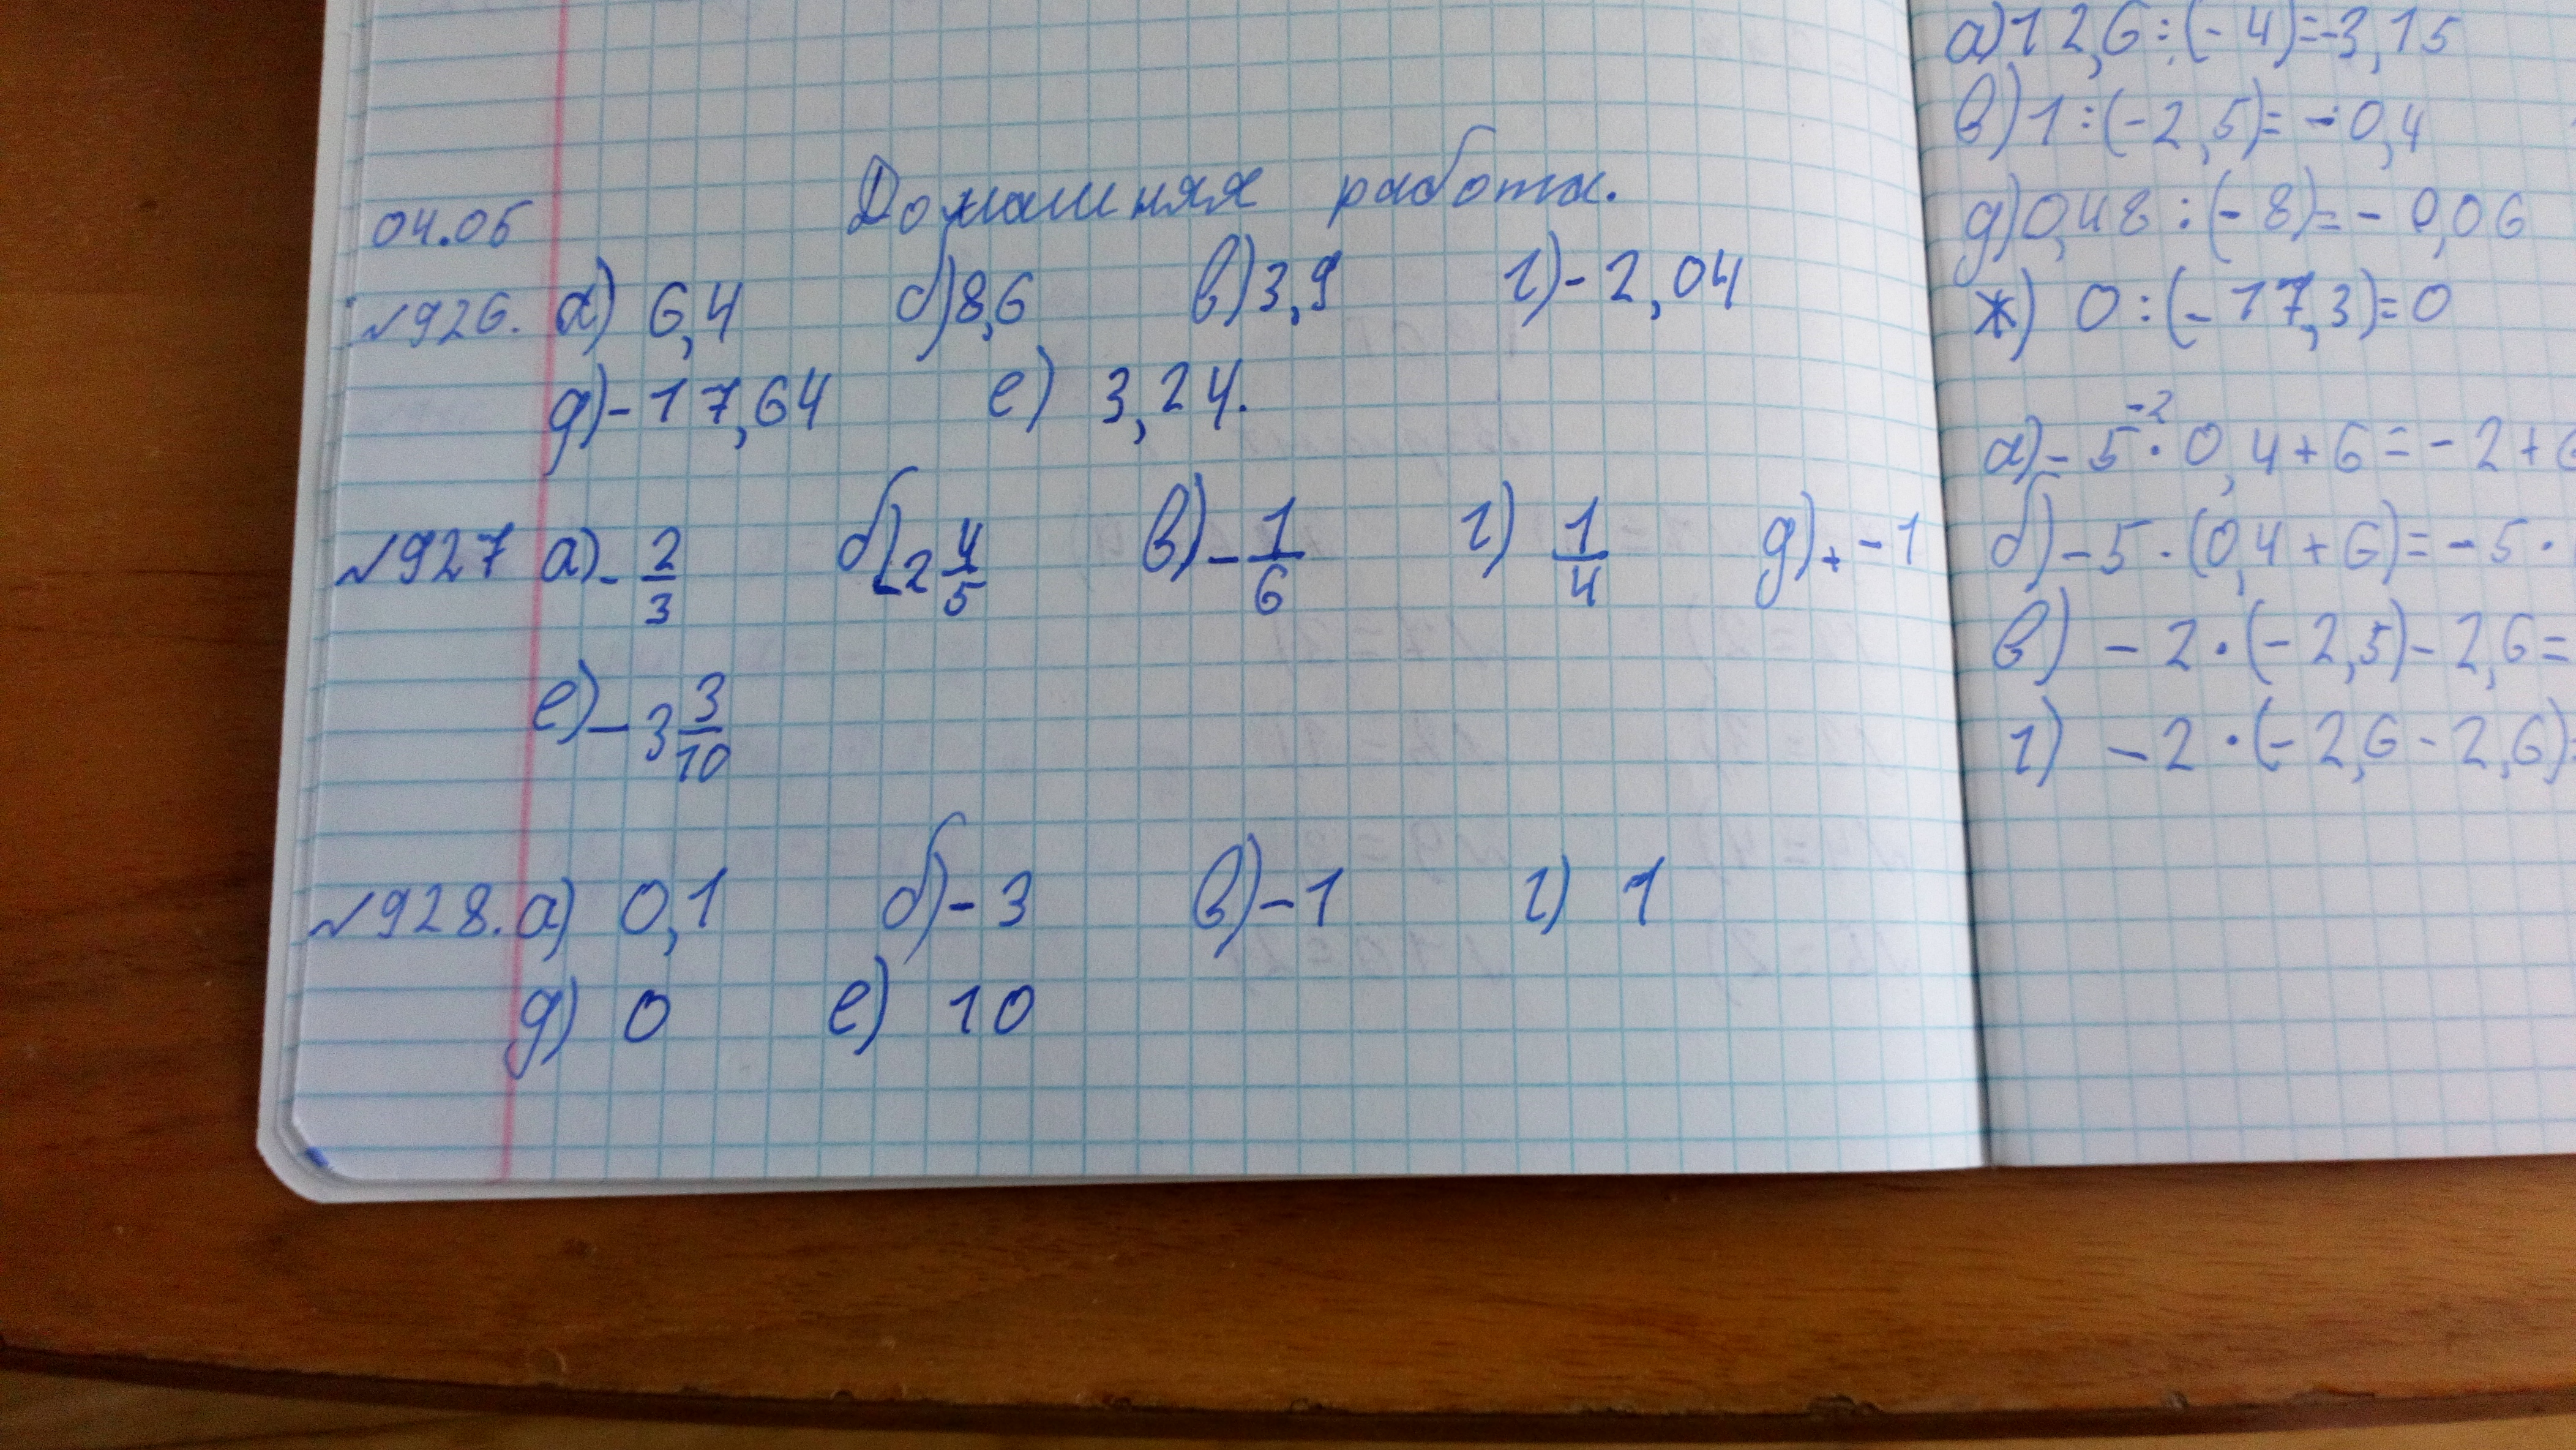 Домашняя работа.
04.05
№926. а) 6,4 б) 8,6 в) 3,9 г) -2,04
д) -17,64 е) 3,24.
№927 а) -2/3 б) -2 4/5 в) -1/6 г) 1/4 д) + -1
е) -3 3/10
№928. а) 0,1 б) -3 в) -1 г) 1
д) 0 е) 10
а) 12,6 : (-4) = -3,15
в) 1 : (-2,5) = -0,4
д) 0,48 : (-8) = -0,06
ж) 0 : (-17,3) = 0
-2
а) -5 · 0,4 + 6 = -2 + 6
б) -5 · (0,4 + 6) = -5 ·
в) -2 · (-2,5) - 2,6 =
г) -2 · (-2,6 - 2,6) =